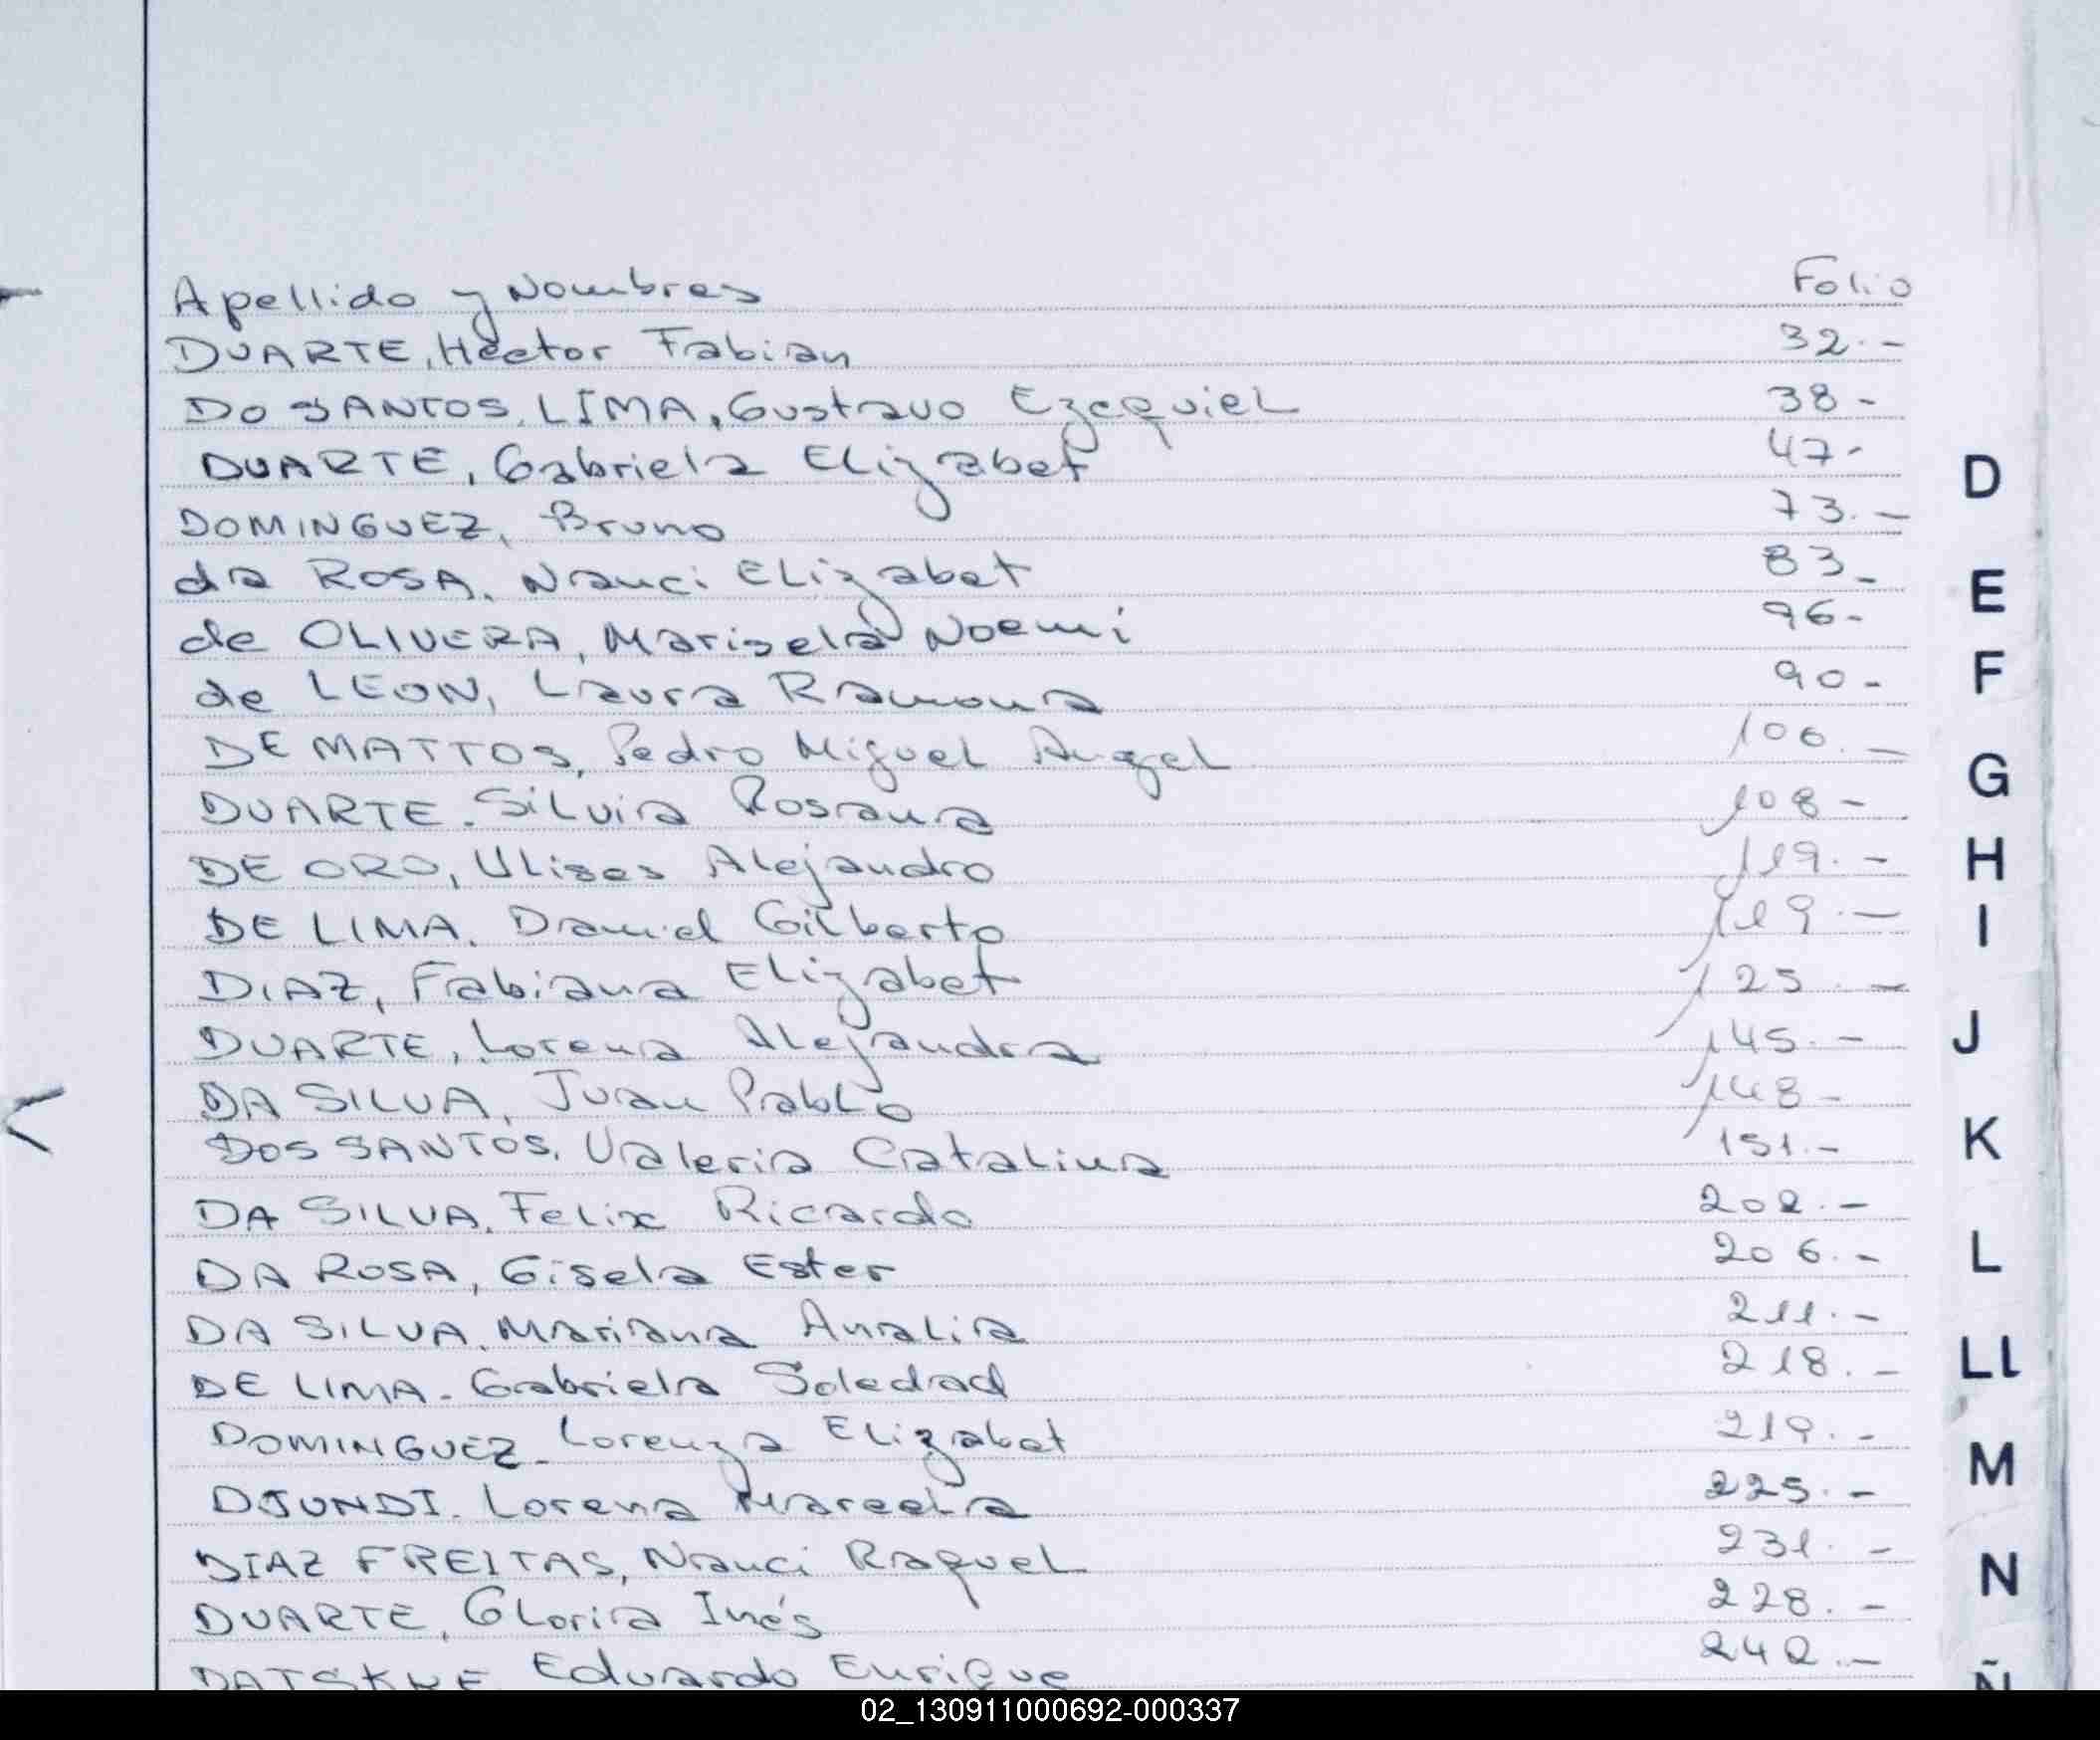 Apellido y Nombres Folio
DUARTE, Hector Fabian 32.-
DO SANTOS, LIMA, Gustavo Ezequiel 38-
DUARTE, Gabriela Elizabet 47-
D
DOMINGUEZ, Bruno 73.-
da ROSA, Nanci Elizabet 83-
E
de OLIVERA, Marisela Noemí 96-
de LEON, Laura Ramona 90-
F
DE MATTOS, Pedro Miguel Angel 106.-
G
DUARTE. Silvia Rosana 108-
DE ORO, Ulises Alejandro 119.-
H
DE LIMA. Daniel Gilberto 119.-
I
DIAZ, Fabiana Elizabet 125.-
DUARTE, Lorena Alejandra 145.-
J
DA SILVA, Juan Pablo 148-
DOS SANTOS. Valeria Catalina 151.-
K
DA SILVA. Felix Ricardo 202.-
DA ROSA, Gisela Ester 206.-
L
DA SILVA. Mariana Analia 211.-
DE LIMA - Gabriela Soledad 218.-
Ll
DOMINGUEZ - Lorenza Elizabet 219.-
M
DJUNDI. Lorena Marcela 225.-
DIAZ FREITAS, Nanci Raquel 231.-
N
DUARTE, Gloria Inés 228.-
Eduardo Enrique 242.-
Ñ
02_130911000692-000337